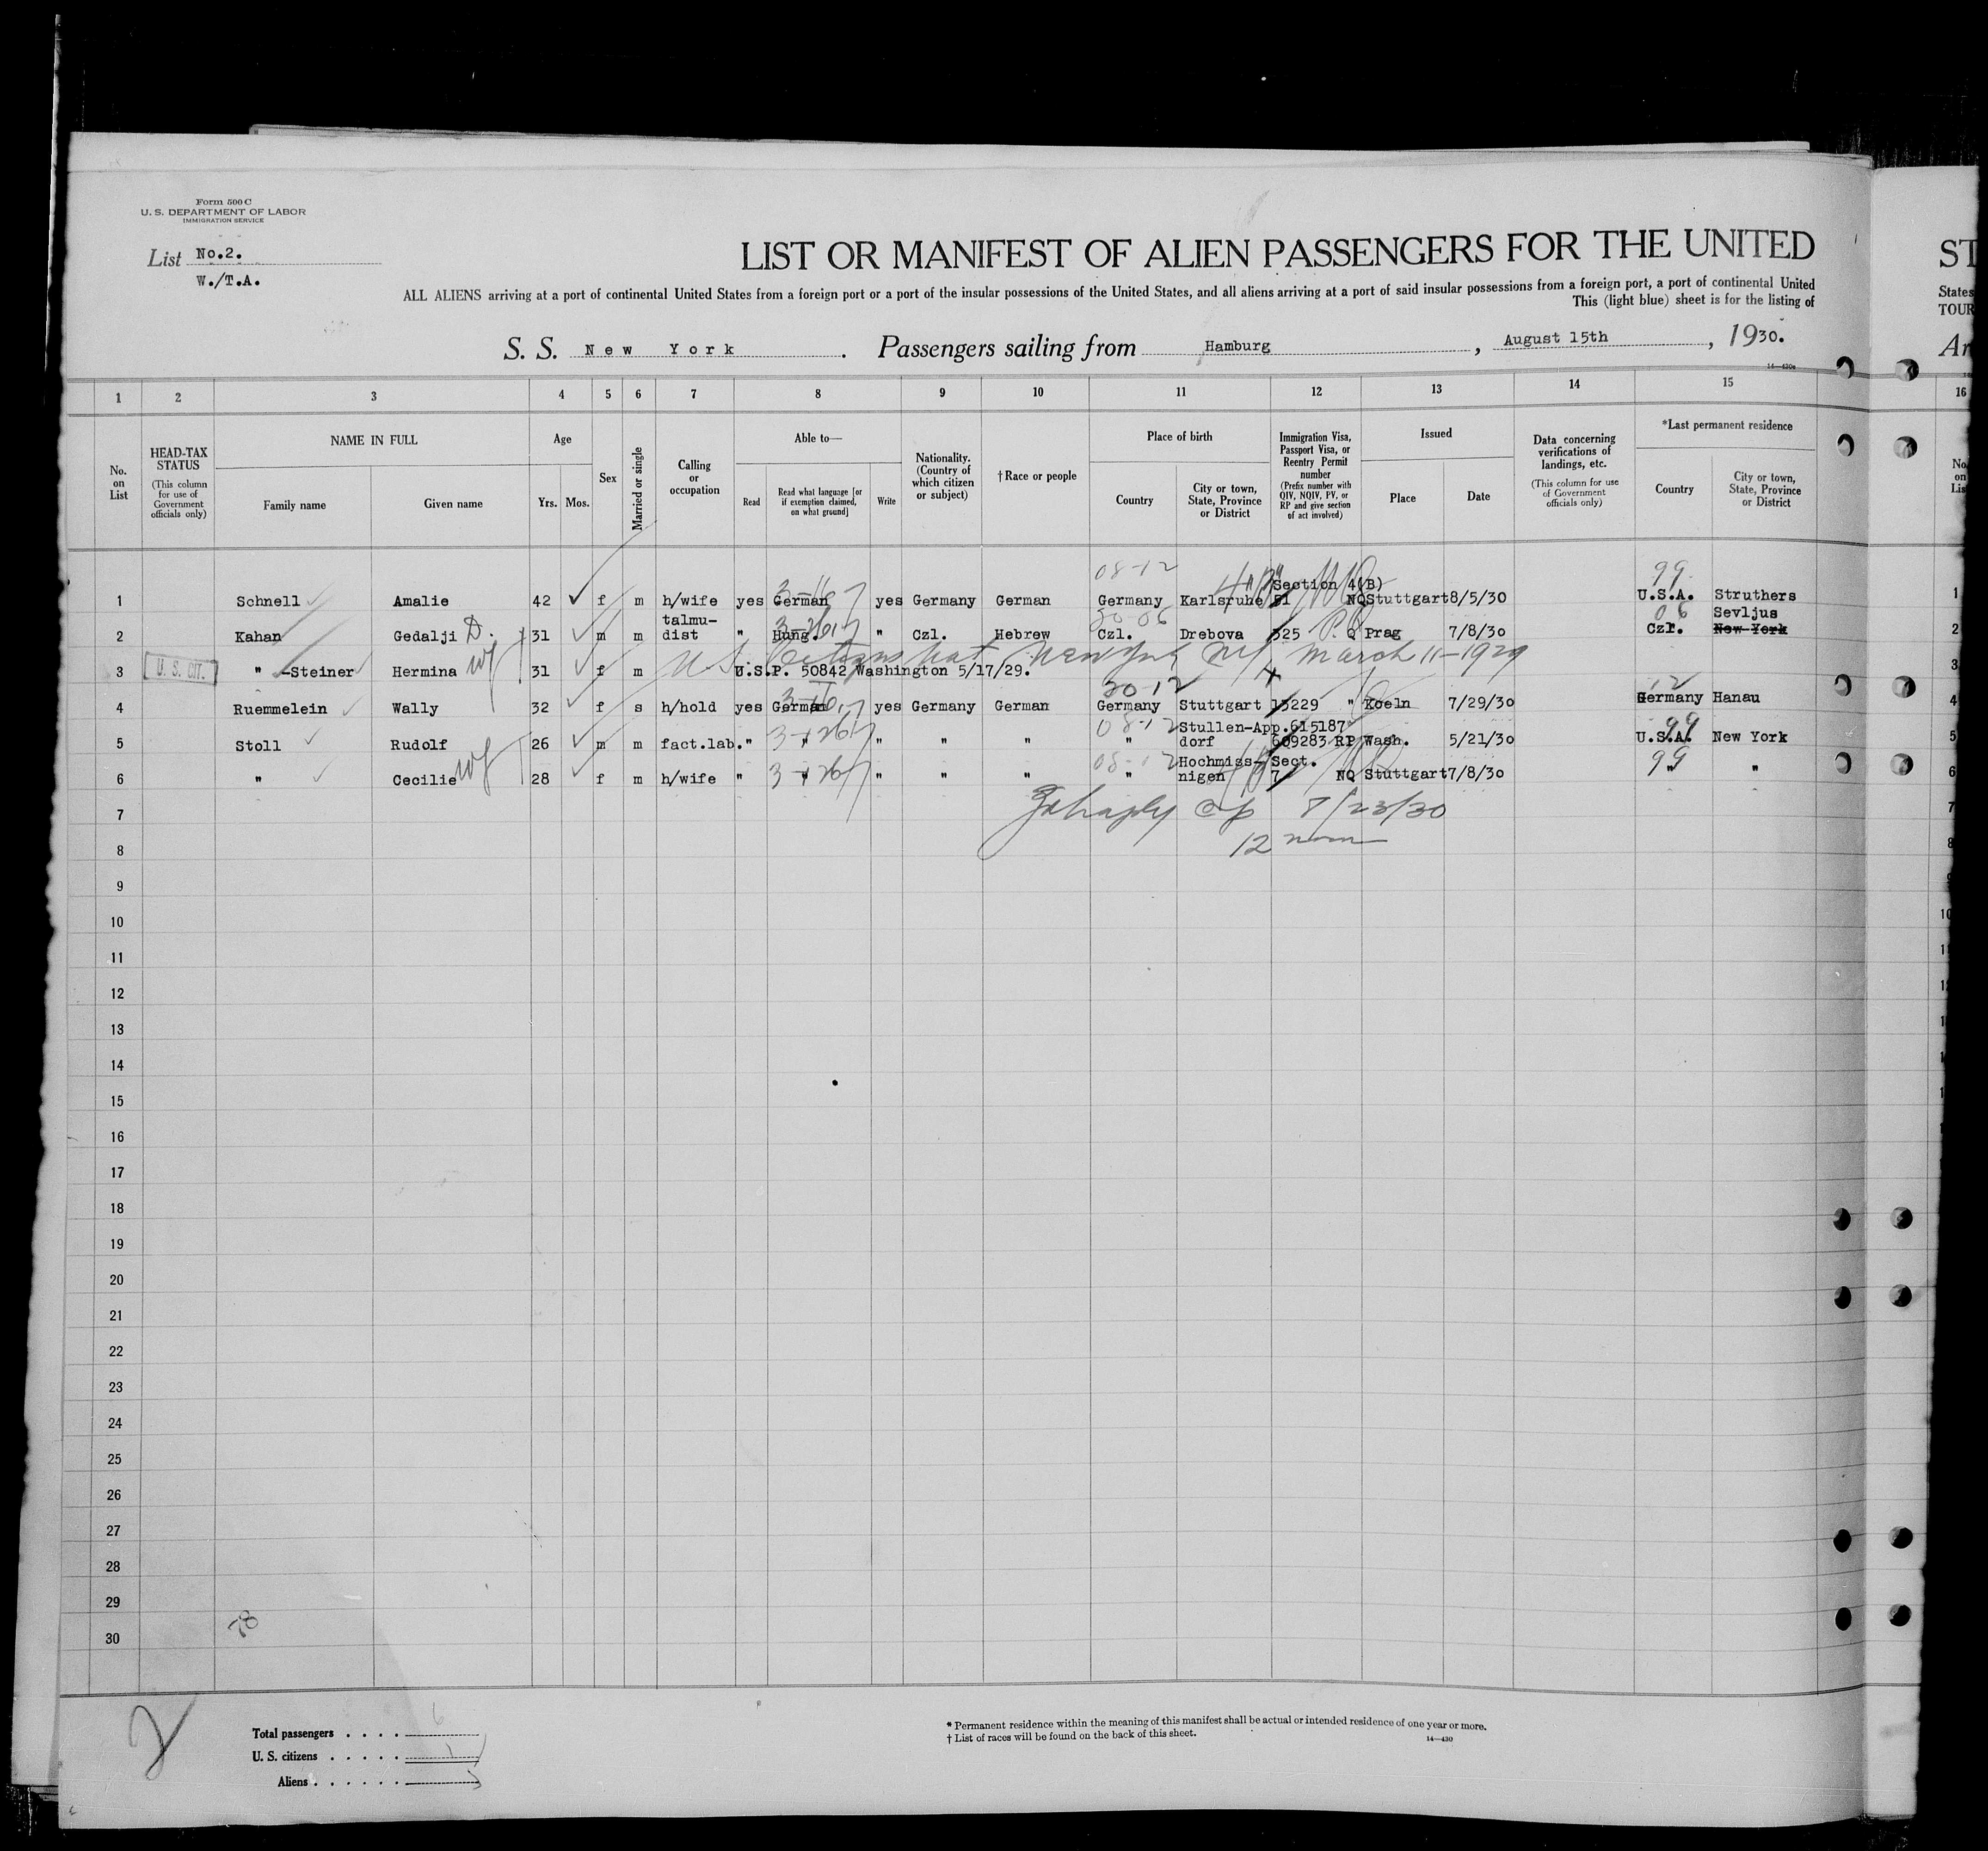 Form 500 C
U. S. DEPARTMENT OF LABOR
IMMIGRATION SERVICE
List No.2.
W./T.A.
LIST OR MANIFEST OF ALIEN PASSENGERS FOR THE UNITED
ST
ALL ALIENS arriving at a port of continental United States from a foreign port or a port of the insular possessions of the United States, and all aliens arriving at a port of said insular possessions from a foreign port, a port of continental United
States
This (light blue) sheet is for the listing of
TOUR
S. S. New York. Passengers sailing from Hamburg, August 15th, 1930.
Ar
14—430a
1 2 3 4 5 6 7 8 9 10 11 12 13 14 15 16
No. on List
HEAD-TAX STATUS
(This column for use of Government officials only)
NAME IN FULL
Family name
Given name
Age
Yrs. Mos.
Sex
Married or single
Calling or occupation
Able to—
Read
Read what language [or if exemption claimed, on what ground]
Write
Nationality. (Country of which citizen or subject)
†Race or people
Place of birth
Country
City or town, State, Province or District
Immigration Visa, Passport Visa, or Reentry Permit number
(Prefix number with QIV, NQIV, PV, or RP and give section of act involved)
Issued
Place
Date
Data concerning verifications of landings, etc.
(This column for use of Government officials only)
*Last permanent residence
Country
City or town, State, Province or District
No. on List
08-12 99
Section 4(B)
1 Schnell Amalie 42 f m h/wife yes German yes Germany German Germany Karlsruhe 51 NQ Stuttgart 8/5/30 U.S.A. Struthers 1
talmu- 06 Sevljus
2 Kahan Gedalji D. 31 m m dist " Hung. " Czl. Hebrew Czl. Drebova 525 Q Prag 7/8/30 Czl. New York 2
U.S. Citizens at New York NY March 11-1929
U. S. CIT.
3 " -Steiner Hermina wf 31 f m U.S.P. 50842 Washington 5/17/29. 3
30-12 12
4 Ruemmelein Wally 32 f s h/hold yes German yes Germany German Germany Stuttgart 13229 " Koeln 7/29/30 Germany Hanau 4
08-12 Stullen- App.615187 99
5 Stoll Rudolf 26 m m fact.lab. " " " " " " dorf 609283 RP Wash. 5/21/30 U.S.A. New York 5
08-12 Hochmiss- Sect. 99
6 " Cecilie wf 28 f m h/wife " " " " " " nigen 7 NQ Stuttgart 7/8/30 " " 6
7 8/23/30 7
8 12 noon 8
9
10 10
11
12
13
14
15
16
17
18
19
20
21
22
23
24
25
26
27
28
29
78
30
2
Total passengers . . . . 6
U. S. citizens . . . . . 1
Aliens . . . . . . 5
* Permanent residence within the meaning of this manifest shall be actual or intended residence of one year or more.
† List of races will be found on the back of this sheet.
14—430